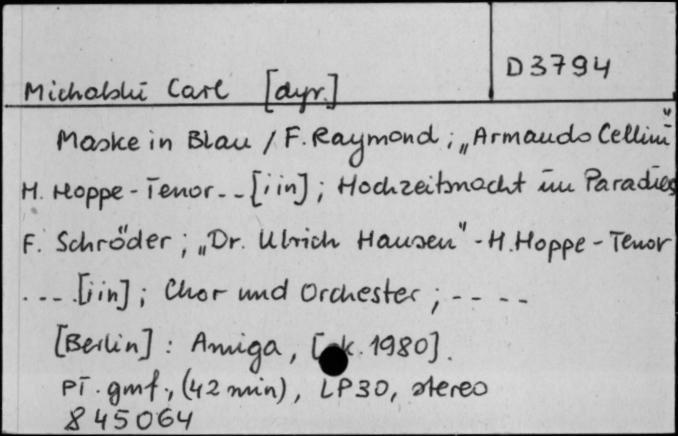 D3794
Michalski Carl [dyr.]
Maske in Blau / F. Raymond ; „Armando Cellini"
H. Hoppe - Tenor - - [i in] ; Hochzeitsnacht im Paradies
F. Schröder ; „Dr. Ulrich Hansen" - H. Hoppe - Tenor
- - - . [i in] ; Chor und Orchester ; - - - -
[Berlin] : Amiga, [ok. 1980].
Pł. gmf., (42 min), LP30, stereo
845064